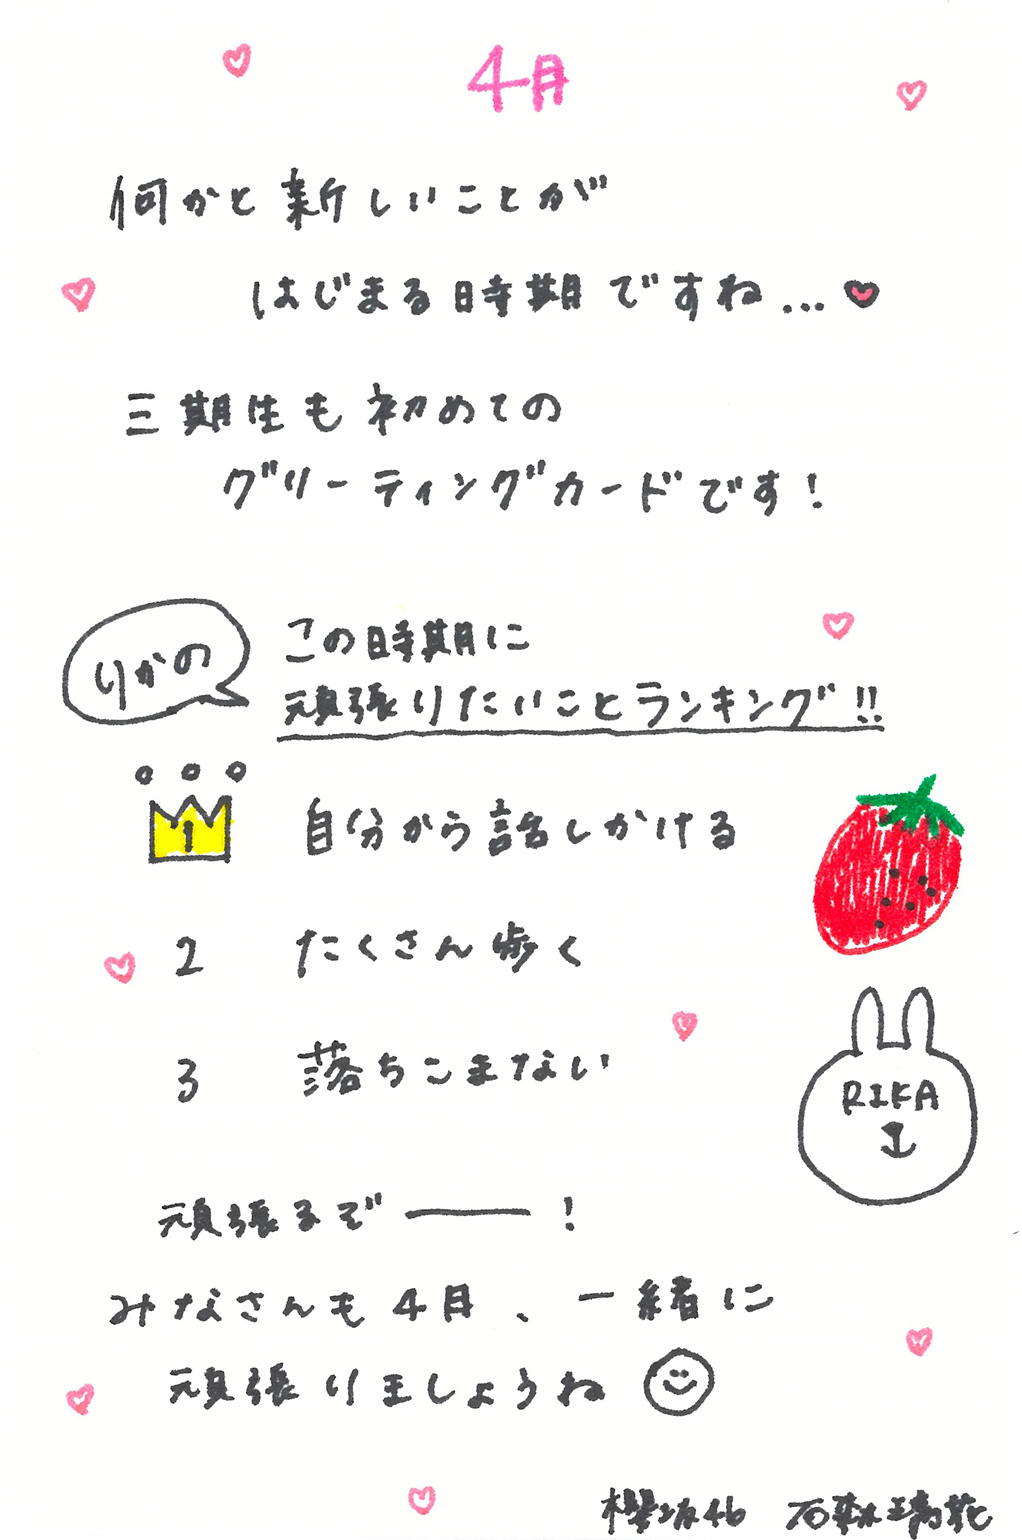 4月
何かと新しいことが
はじまる時期ですね...
三期生も初めての
グリーティングカードです!
りかの
この時期に
頑張りたいことランキング!!
1 自分から話しかける
2 たくさん歩く
3 落ちこまない
RIKA
頑張るぞー!
みなさんも4月、一緒に
頑張りましょうね
櫻坂46 石森璃花